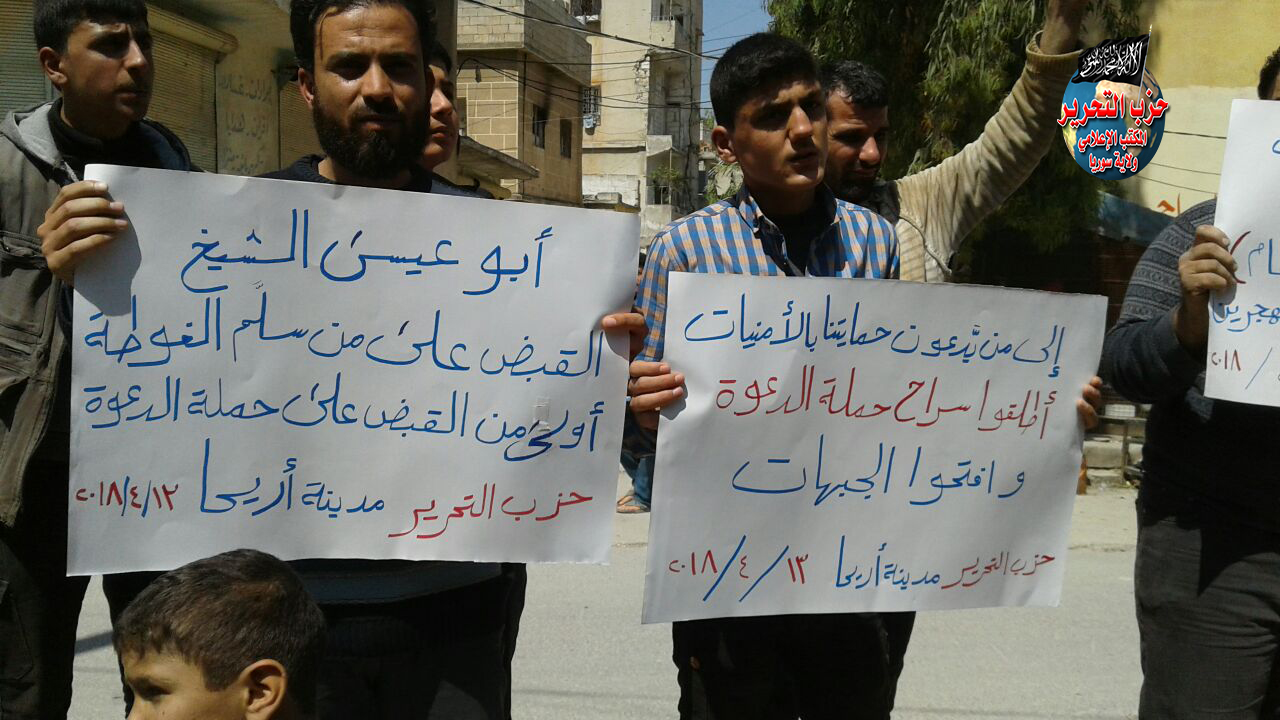 أبو عيسى الشيخ
القبض على من سلَّم الغوطة
أولى من القبض على حملة الدعوة
حزب التحرير مدينة أريحا ٢٠١٨/٤/١٣
إلى من يدَّعون حمايتنا بالأمنيات
أطلقوا سراح حملة الدعوة
وافتحوا الجبهات
حزب التحرير مدينة أريحا ١٣/٤/٢٠١٨
حزب التحرير
المكتب الإعلامي
ولاية سوريا